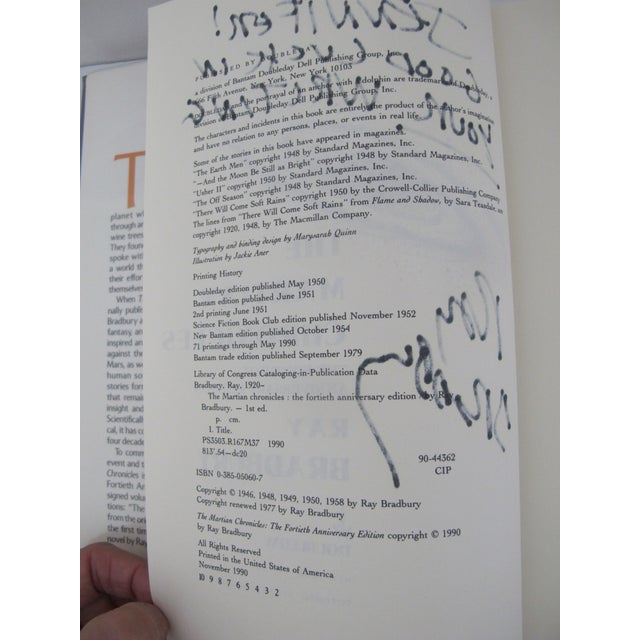 JENNIFER!
GOOD LUCK IN
YOUR WRITING!
Ray
Bradbury
PUBLISHED BY DOUBLEDAY
a division of Bantam Doubleday Dell Publishing Group, Inc.
666 Fifth Avenue, New York, New York 10103
DOUBLEDAY and the portrayal of an anchor with a dolphin are trademarks of Doubleday, a
division of Bantam Doubleday Dell Publishing Group, Inc.
The characters and incidents in this book are entirely the product of the author's imagination
and have no relation to any persons, places, or events in real life.
Some of the stories in this book have appeared in magazines:
"The Earth Men" copyright 1948 by Standard Magazines, Inc.
"—And the Moon Be Still as Bright" copyright 1948 by Standard Magazines, Inc.
"Usher II" copyright 1950 by Standard Magazines, Inc.
"The Off Season" copyright 1948 by Standard Magazines, Inc.
"There Will Come Soft Rains" copyright 1950 by the Crowell-Collier Publishing Company
The lines from "There Will Come Soft Rains" from Flame and Shadow, by Sara Teasdale,
copyright 1920, 1948, by The Macmillan Company.
Typography and binding design by Marysarah Quinn
Illustration by Jackie Aher
Printing History
Doubleday edition published May 1950
Bantam edition published June 1951
2nd printing June 1951
Science Fiction Book Club edition published November 1952
New Bantam edition published October 1954
71 printings through May 1990
Bantam trade edition published September 1979
Library of Congress Cataloging-in-Publication Data
Bradbury, Ray, 1920–
The Martian chronicles : the fortieth anniversary edition / by Ray
Bradbury. — 1st ed.
p. cm.
I. Title.
PS3503.R167M37 1990
813'.54—dc20 90-44362
CIP
ISBN 0-385-05060-7
Copyright © 1946, 1948, 1949, 1950, 1958 by Ray Bradbury
Copyright renewed 1977 by Ray Bradbury
The Martian Chronicles: The Fortieth Anniversary Edition copyright © 1990
by Ray Bradbury
All Rights Reserved
Printed in the United States of America
November 1990
10 9 8 7 6 5 4 3 2
T
planet
through
wine trees
They found
spoke with
a world
their
themselves
When
nally
Bradbury
fantasy,
inspired
against the
Mars, as
human
stories
that remain
insight and
Scientifically
cal, it has
four decades
To
event and
Chronicles is
Fortieth
signed
tions: "The
from the
the first time
novel by Ray